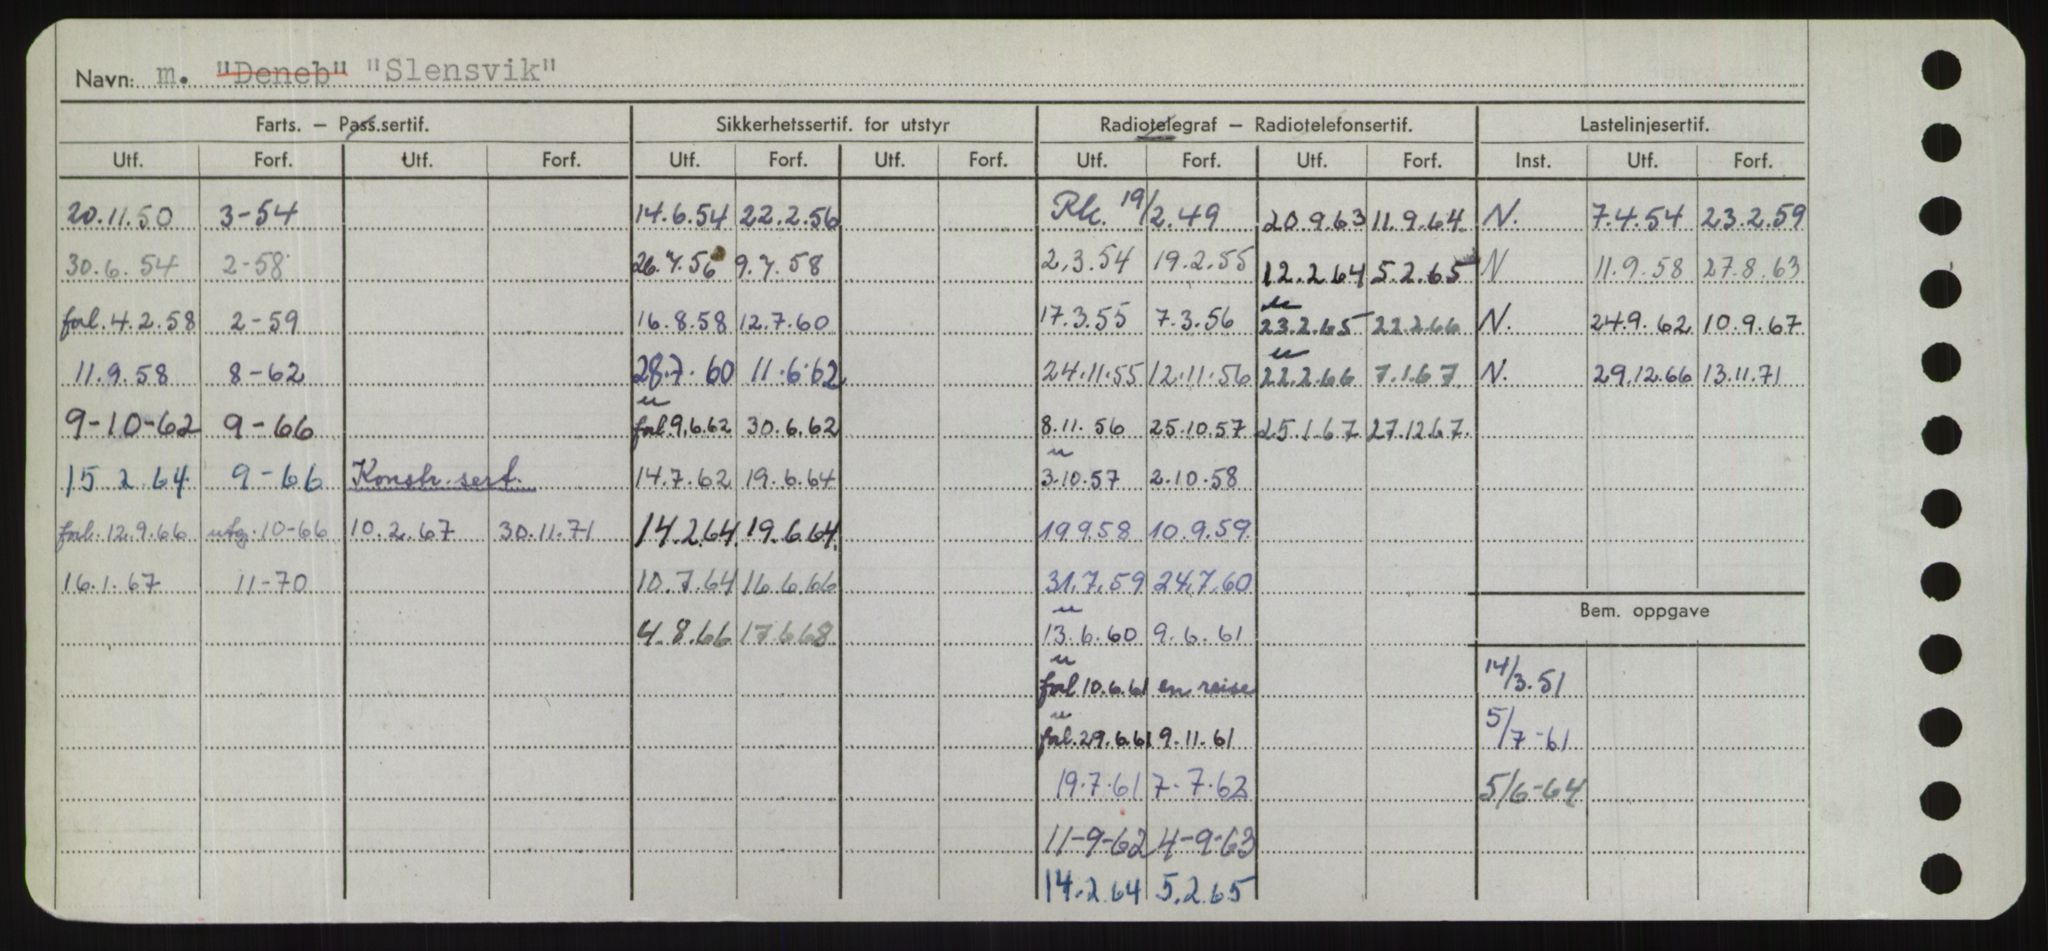 Navn: m. "Deneb" "Slensvik"
Farts. – Pass.sertif. Sikkerhetssertif. for utstyr Radiotelegraf – Radiotelefonsertif. Lastelinjesertif.
Utf. Forf. Utf. Forf. Utf. Forf. Utf. Forf. Utf. Forf. Utf. Forf. Inst. Utf. Forf.
20.11.50 3-54 14.6.54 22.2.56 Rk. 19/2.49 20.9.63 11.9.64 N. 7.4.54 23.2.59
30.6.54 2-58 26.7.56 9.7.58 2.3.54 19.2.55 12.2.64 5.2.65 N 11.9.58 27.8.63
forl. 4.2.58 2-59 16.8.58 12.7.60 17.3.55 7.3.56 u 23.2.65 22.2.66 N. 24.9.62 10.9.67
11.9.58 8-62 28.7.60 11.6.62 24.11.55 12.11.56 u 22.2.66 7.1.67 N. 29.12.66 13.11.71
9-10-62 9-66 u forl. 9.6.62 30.6.62 8.11.56 25.10.57 25.1.67 27.12.67.
15.2.64 9-66 Konstr. sert. 14.7.62 19.6.64 u 3.10.57 2.10.58
forl. 12.9.66 utg. 10-66 10.2.67 30.11.71 14.2.64 19.6.64 19.9.58 10.9.59
16.1.67 11-70 10.7.64 16.6.66 31.7.59 24.7.60
Bem. oppgave
4.8.66 17.6.68 u 13.6.60 9.6.61
u forl 10.6.61 en reise 14/3.51
u forl. 29.6.61 9.11.61 5/7-61
19.7.61 7.7.62 5/6-64
11-9-62 4-9-63
14.2.64 5.2.65